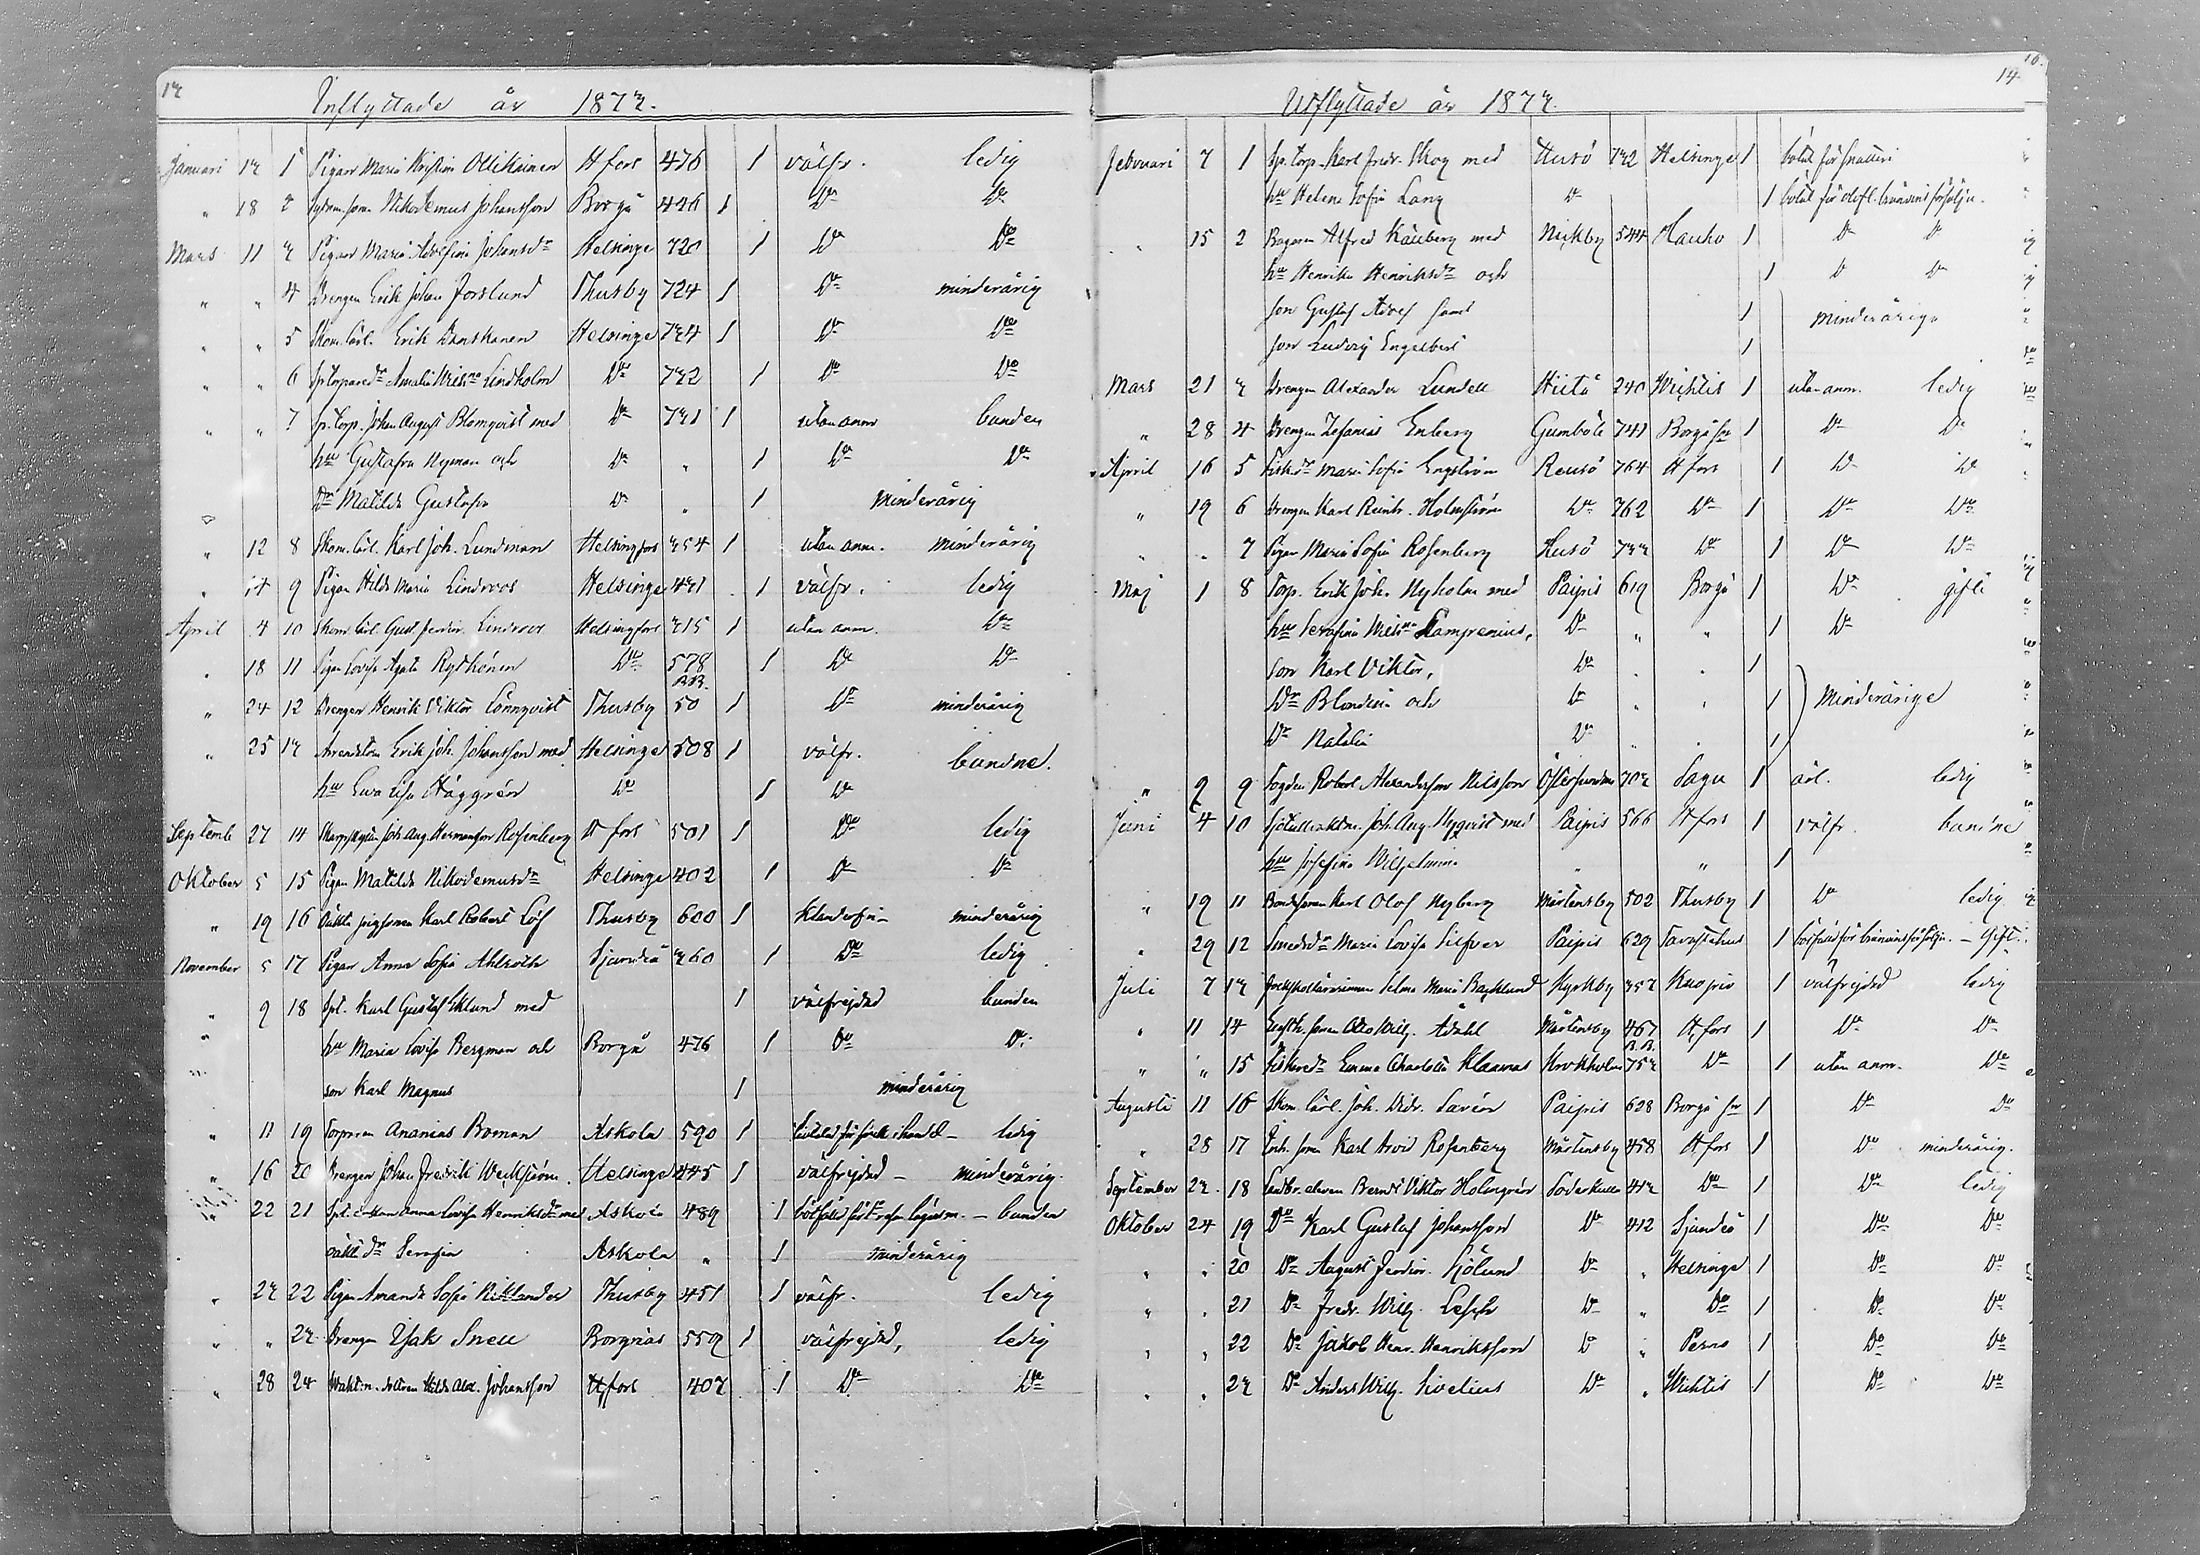 13
Inflyttade år 1873.
Januari 13 1 Pigan Maria Kristina Ollikainen H:fors 476 1 välfr. ledig
" 18 2 Nikodemus Johansson Borgå 446 1 Do Do
Mars 11 3 Pigan Maria Adolfina Johansdr Helsinge 720 1 Do Do
" " 4 Drengen Erik Johan Forslund Thusby 724 1 Do minderårig
" " 5 Skom. lärl. Erik Danskanen Helsinge 734 1 Do Do
" " 6 Amalia Lindholm Do 732 1 Do Do
" " 7 Johan August Blomqvist med Do 731 1 utan anm bunden
hu Gustafva Nyman och Do " 1 Do Do
Dr Matilda Gustafva Do " 1 minderårig
" 12 8 Skom. lärl. Karl Joh. Lundman Helsingfors 354 1 utan anm. minderårig
" 14 9 Pigan Hilda Maria Lindroos Helsinge 431 1 välfr. ledig
April 4 10 Skom. lärl. Gust. Lindroos Helsingfors 315 1 utan anm. Do
" 18 11 Pigan Lovisa Agata Rytkönen Do 578 1 Do Do
B.B.
" 24 12 Drengen Henrik Viktor Lönnqvist Thusby 50 1 Do minderårig
" 25 13 Erik Joh. Johansson med Helsinge 508 1 välfr. bundne.
hu Eva Lisa Häggren Do 1 Do
Septemb 27 14 Joh. Aug. Hermansson Rosenberg H:fors 501 1 Do ledig
Oktober 5 15 Pigan Matilda Nikodemusdr Helsinge 402 1 Do Do
" 19 16 Karl Robert Löf Thusby 600 1 minderårig
November 5 17 Pigan Anna Sofia Ahlroth Sjundeå 360 1 Do ledig
" 9 18 Karl Gustaf Eklund med 1 välfrejdad bunden
" hu Maria Lovisa Bergman och Borgå 476 1 Do Do
son Karl Magnus 1 minderårig
" 11 19 Torparen Ananias Boman Askola 590 1 ledig
" 16 20 Drengen Johan Fredrik Weckström Helsinge 445 1 välfrejdad – minderårig.
" 22 21 Anna Lovisa Henriksdr med Askola 489 1 – bunden
oäkta dr Serafia Askola " 1 minderårig
" 23 22 Pigan Amanda Sofia Niklander Thusby 451 1 välfr. ledig
" " 23 Drengen Isak Snell Borgnäs 559 1 välfrejdad, ledig
" 28 24 Hilda Alex. Johansson H:fors 403 1 Do Do
14
Utflyttade år 1873.
Februari 7 1 Karl Fredr. Skog med Husö 732 Helsinge 1 bötat för snatteri
hu Helena Sofia Lang Do 1 bötat för olofl. bränvinsförsäljn.
" 15 2 Bagaren Alfred Källberg med Nickby 544 Hauho 1 Do Do
hu Henrika Henriksdr och 1 Do Do
son Gustaf Adolf samt 1 minderåriga
son Ludvig Engelbert 1
Mars 21 3 Drengen Alexander Lundell Hiitå 240 Wichtis 1 utan anm. ledig
" 28 4 Drengen Zefanias Enberg Gumböle 741 Borgå sn 1 Do Do
April 16 5 Maria Sofia Engström Reusö 764 H:fors 1 Do Do
" 19 6 Drengen Karl Reinh. Holmström Do 762 Do 1 Do Do
" " 7 Pigan Maria Sofia Rosenberg Husö 733 Do 1 Do Do
Maj 1 8 Torp. Erik Joh. Nyholm med Paipis 619 Borgå 1 Do gifte
hu Serafina Lamprenius, Do " " 1 Do
son Karl Viktor, Do " " 1
Dr Blondina och Do " " 1 Minderårige
Dr Natalia Do " " 1
" 9 9 Robert Alexandersson Nilsson Östersundom 703 Sagu 1 ärl. ledig
Juni 4 10 Joh. Aug. Nyqvist med Paipis 566 H:fors 1 välfr. bundne
hu Josefina Wilhelmina " " 1
" 19 11 Bondesonen Karl Olof Nyberg Mårtensby 502 Thusby 1 Do ledig
" 29 12 Smedsdr Maria Lovisa Silfver Paipis 629 Tavastehus 1 bötfälld för bränvinsförsäljn. – Gift.
Juli 7 13 Selma Maria Backlund Kyrkby 357 Kuopio 1 välfrejdad ledig
" 11 14 Otto Wilh. Ådahl Mårtensby 467 H:fors 1 Do Do
B.B.
" " 15 Fiskaredr Emma Charlotta Klaavas Krokholm 753 Do 1 utan anm. Do
Augusti 11 16 Skom. lärl. Joh. Didr. Savén Paipis 628 Borgå sn 1 Do Do
" 28 17 Karl Arvid Rosenberg Mårtensby 458 H:fors 1 Do minderårig.
September 23 18 Landbr. eleven Bernd Viktor Holmgrén Söderkulla 413 Do 1 Do ledig
Oktober 24 19 Do Karl Gustaf Johansson Do 412 Sjundeå 1 Do Do
" " 20 Do August Ferdin. Sjölund Do " Helsinge 1 Do Do
" " 21 Do Fredr. Wilh. Lesch Do " Do 1 Do Do
" " 22 Do Jakob Henr. Henriksson Do " Perno 1 Do Do
" " 23 Do Anders Wilh. Sivelius Do " Wichtis 1 Do Do